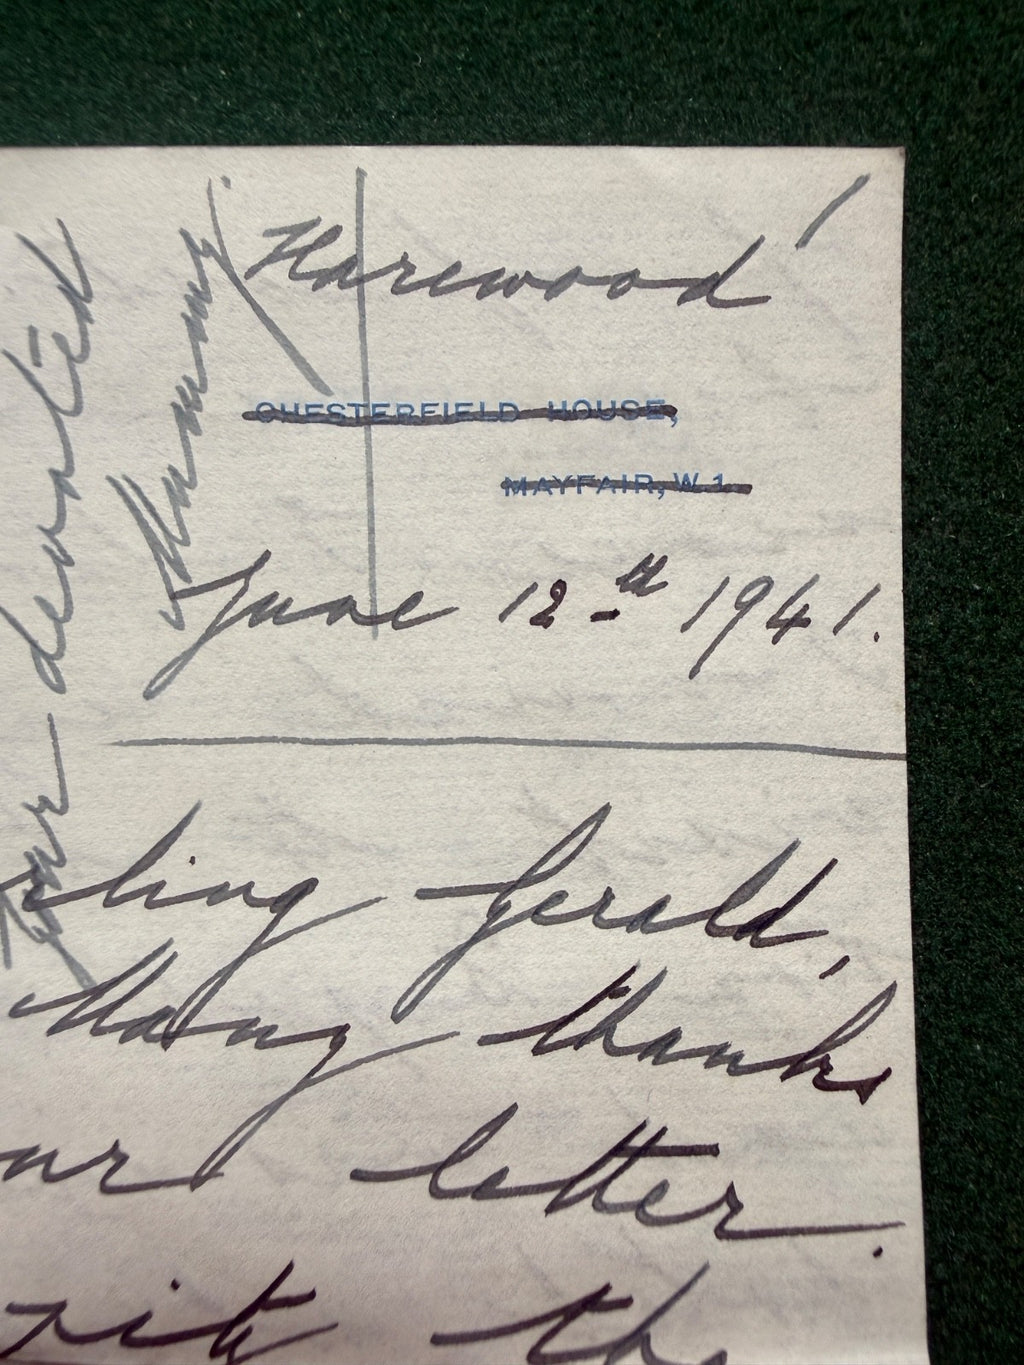 Harewood
CHESTERFIELD HOUSE,
MAYFAIR, W.1.
June 12th 1941.
rling Gerald,
Many thanks
ur letter.
rite the
Your devoted
Mummy.